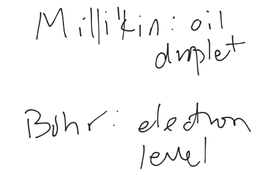 Millikin: oil
droplet
Bohr: electron
level